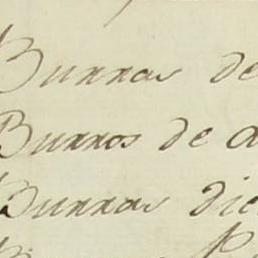 Burras de
Burros de a
Burras die